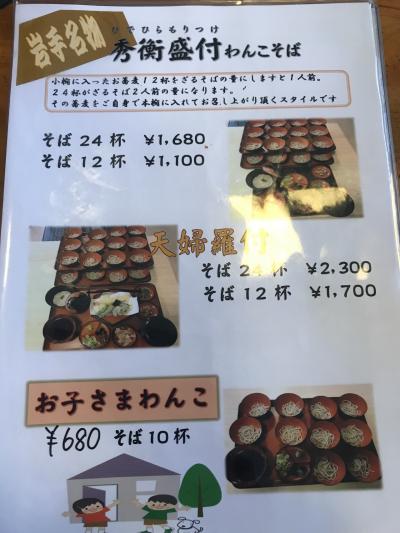 岩手名物
ひでひらもりつけ
秀衡盛付わんこそば
小椀に入ったお蕎麦12杯をざるそばの量にしますと1人前。
24杯がざるそば2人前の量になります。
その蕎麦をご自身で本椀に入れてお召し上がり頂くスタイルです
そば 24 杯 ¥1,680
そば 12 杯 ¥1,100
天婦羅付
そば 24 杯 ¥2,300
そば 12 杯 ¥1,700
お子さまわんこ
¥680 そば10杯